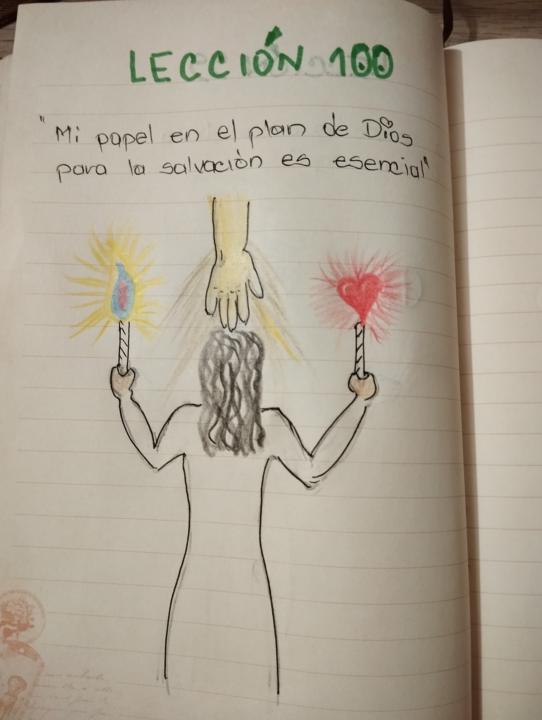 LECCIÓN 100
"Mi papel en el plan de Dios
para la salvación es esencial"